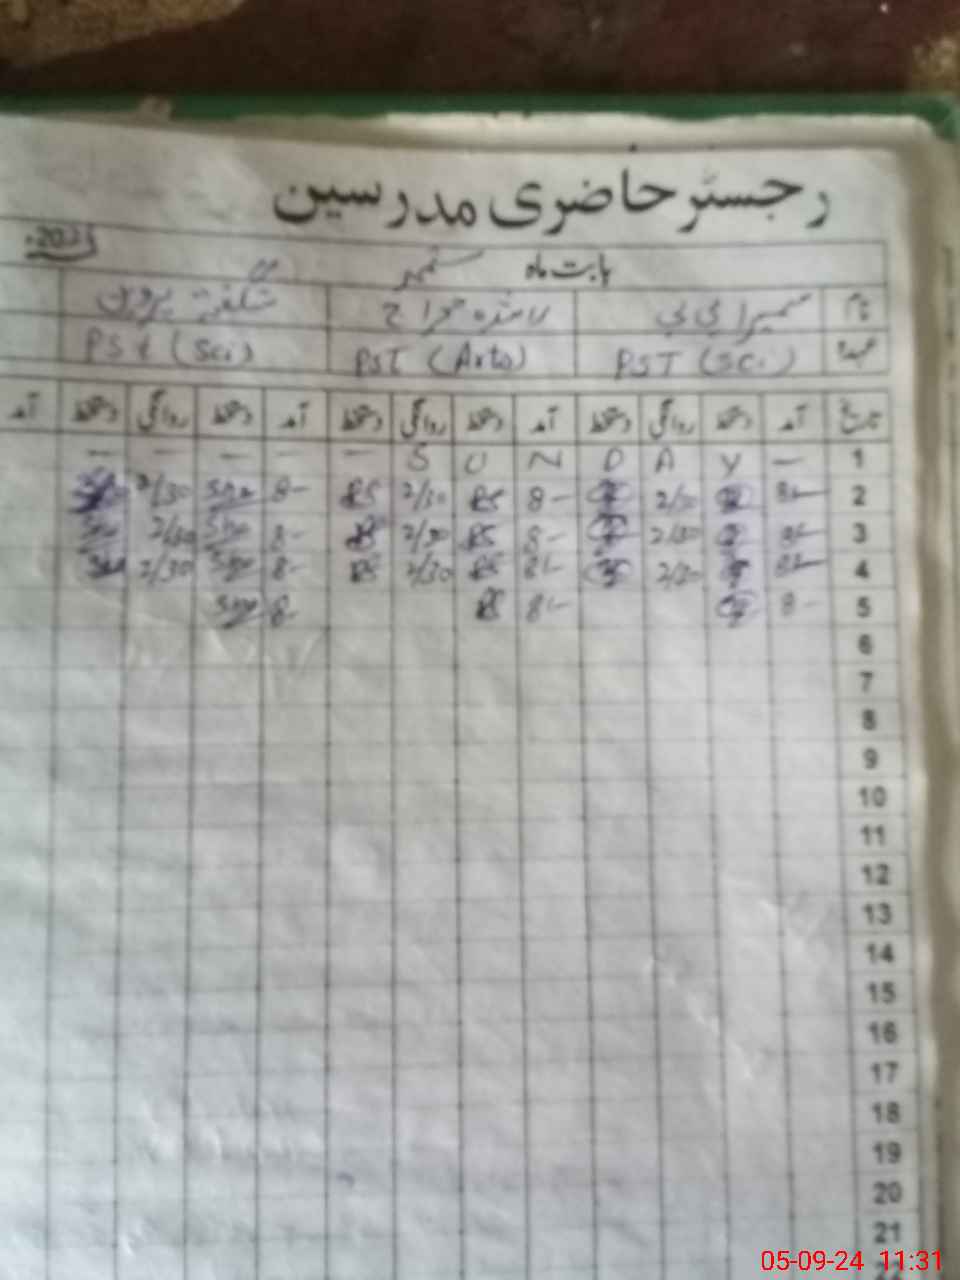 رجسٹر حاضری مدرسین
بابت ماہ ستمبر
نام سمیرا بی بی راشدہ معراج شگفتہ پروین
عہدہ PST (Sci) PST (Arts) PST (Sci)
تاریخ آمد دستخط روانگی دستخط آمد دستخط روانگی دستخط آمد دستخط روانگی دستخط آمد
1 — S U N D A Y — — — — —
2 8/- 2/30 8- RS 2/30 RS 8- 2/30
3 8/- 2/30 8- RS 2/30 RS 8- 2/30
4 8/- 2/30 8/- RS 2/30 RS 8- 2/30
5 8- 8/- RS 8-
6
7
8
9
10
11
12
13
14
15
16
17
18
19
20
21
05-09-24 11:31